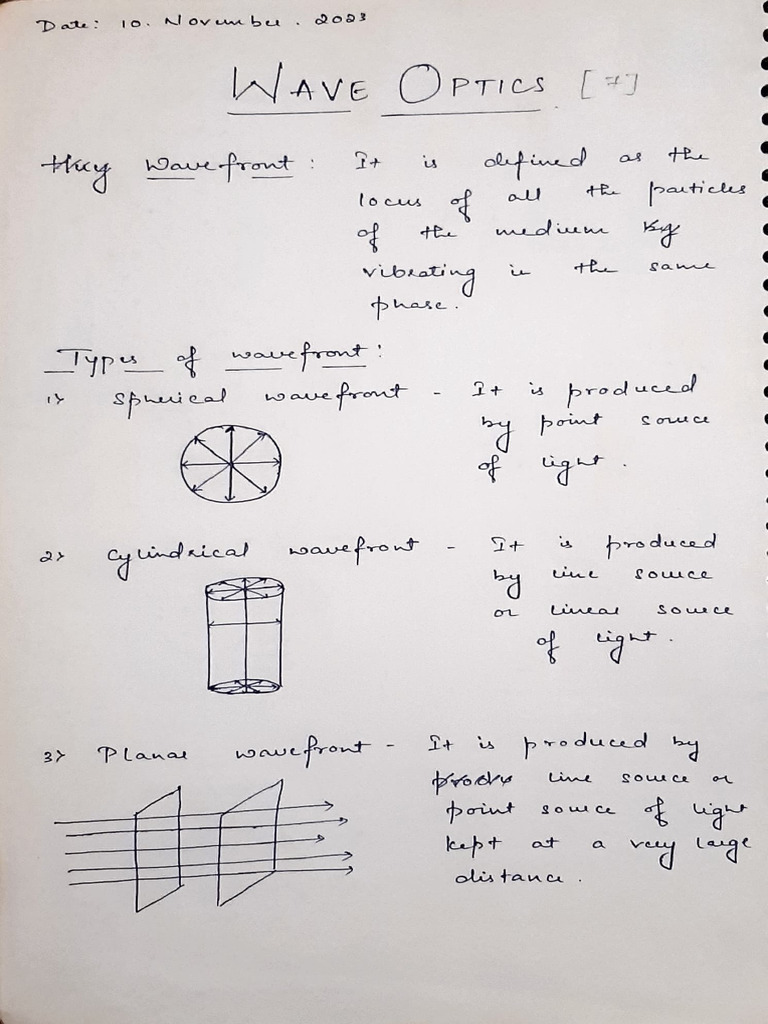 Date: 10. November. 2023
WAVE OPTICS [7]
Wavefront: It is defined as the
locus of all the particles
of the medium
vibrating in the same
phase.
Types of wavefront:
1> Spherical wavefront - It is produced
by point source
of light.
2> Cylindrical wavefront - It is produced
by line source
or linear source
of light.
3> Planar wavefront - It is produced by
line source or
point source of light
kept at a very large
distance.